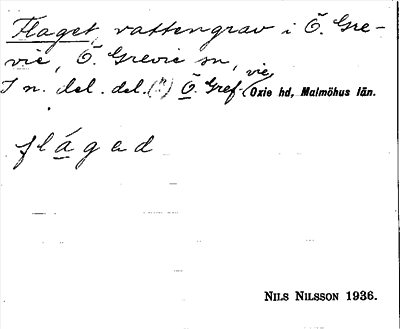 Flaget, vattengrav i Ö. Gre-
vie, Ö. Grevie sn,
I n. del. del. (") Ö. Gref-vie, Oxie hd, Malmöhus län.
flágad
NILS NILSSON 1936.